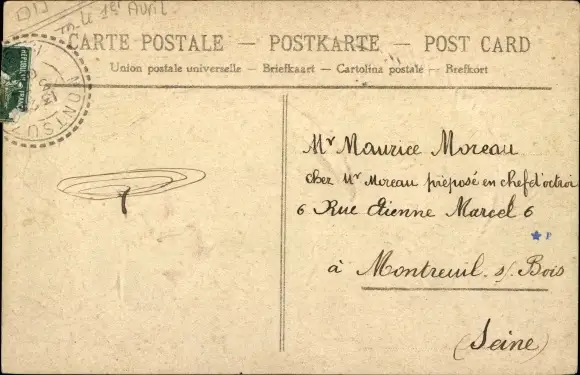 le 1er Avril
CARTE POSTALE — POSTKARTE — POST CARD
Union postale universelle — Briefkaart — Cartolina postale — Brefkort
MONTSU
Mr Maurice Moreau
chez Mr Moreau préposé en chef d'octroi
6 Rue Etienne Marcel 6
à Montreuil s/ Bois
(Seine)